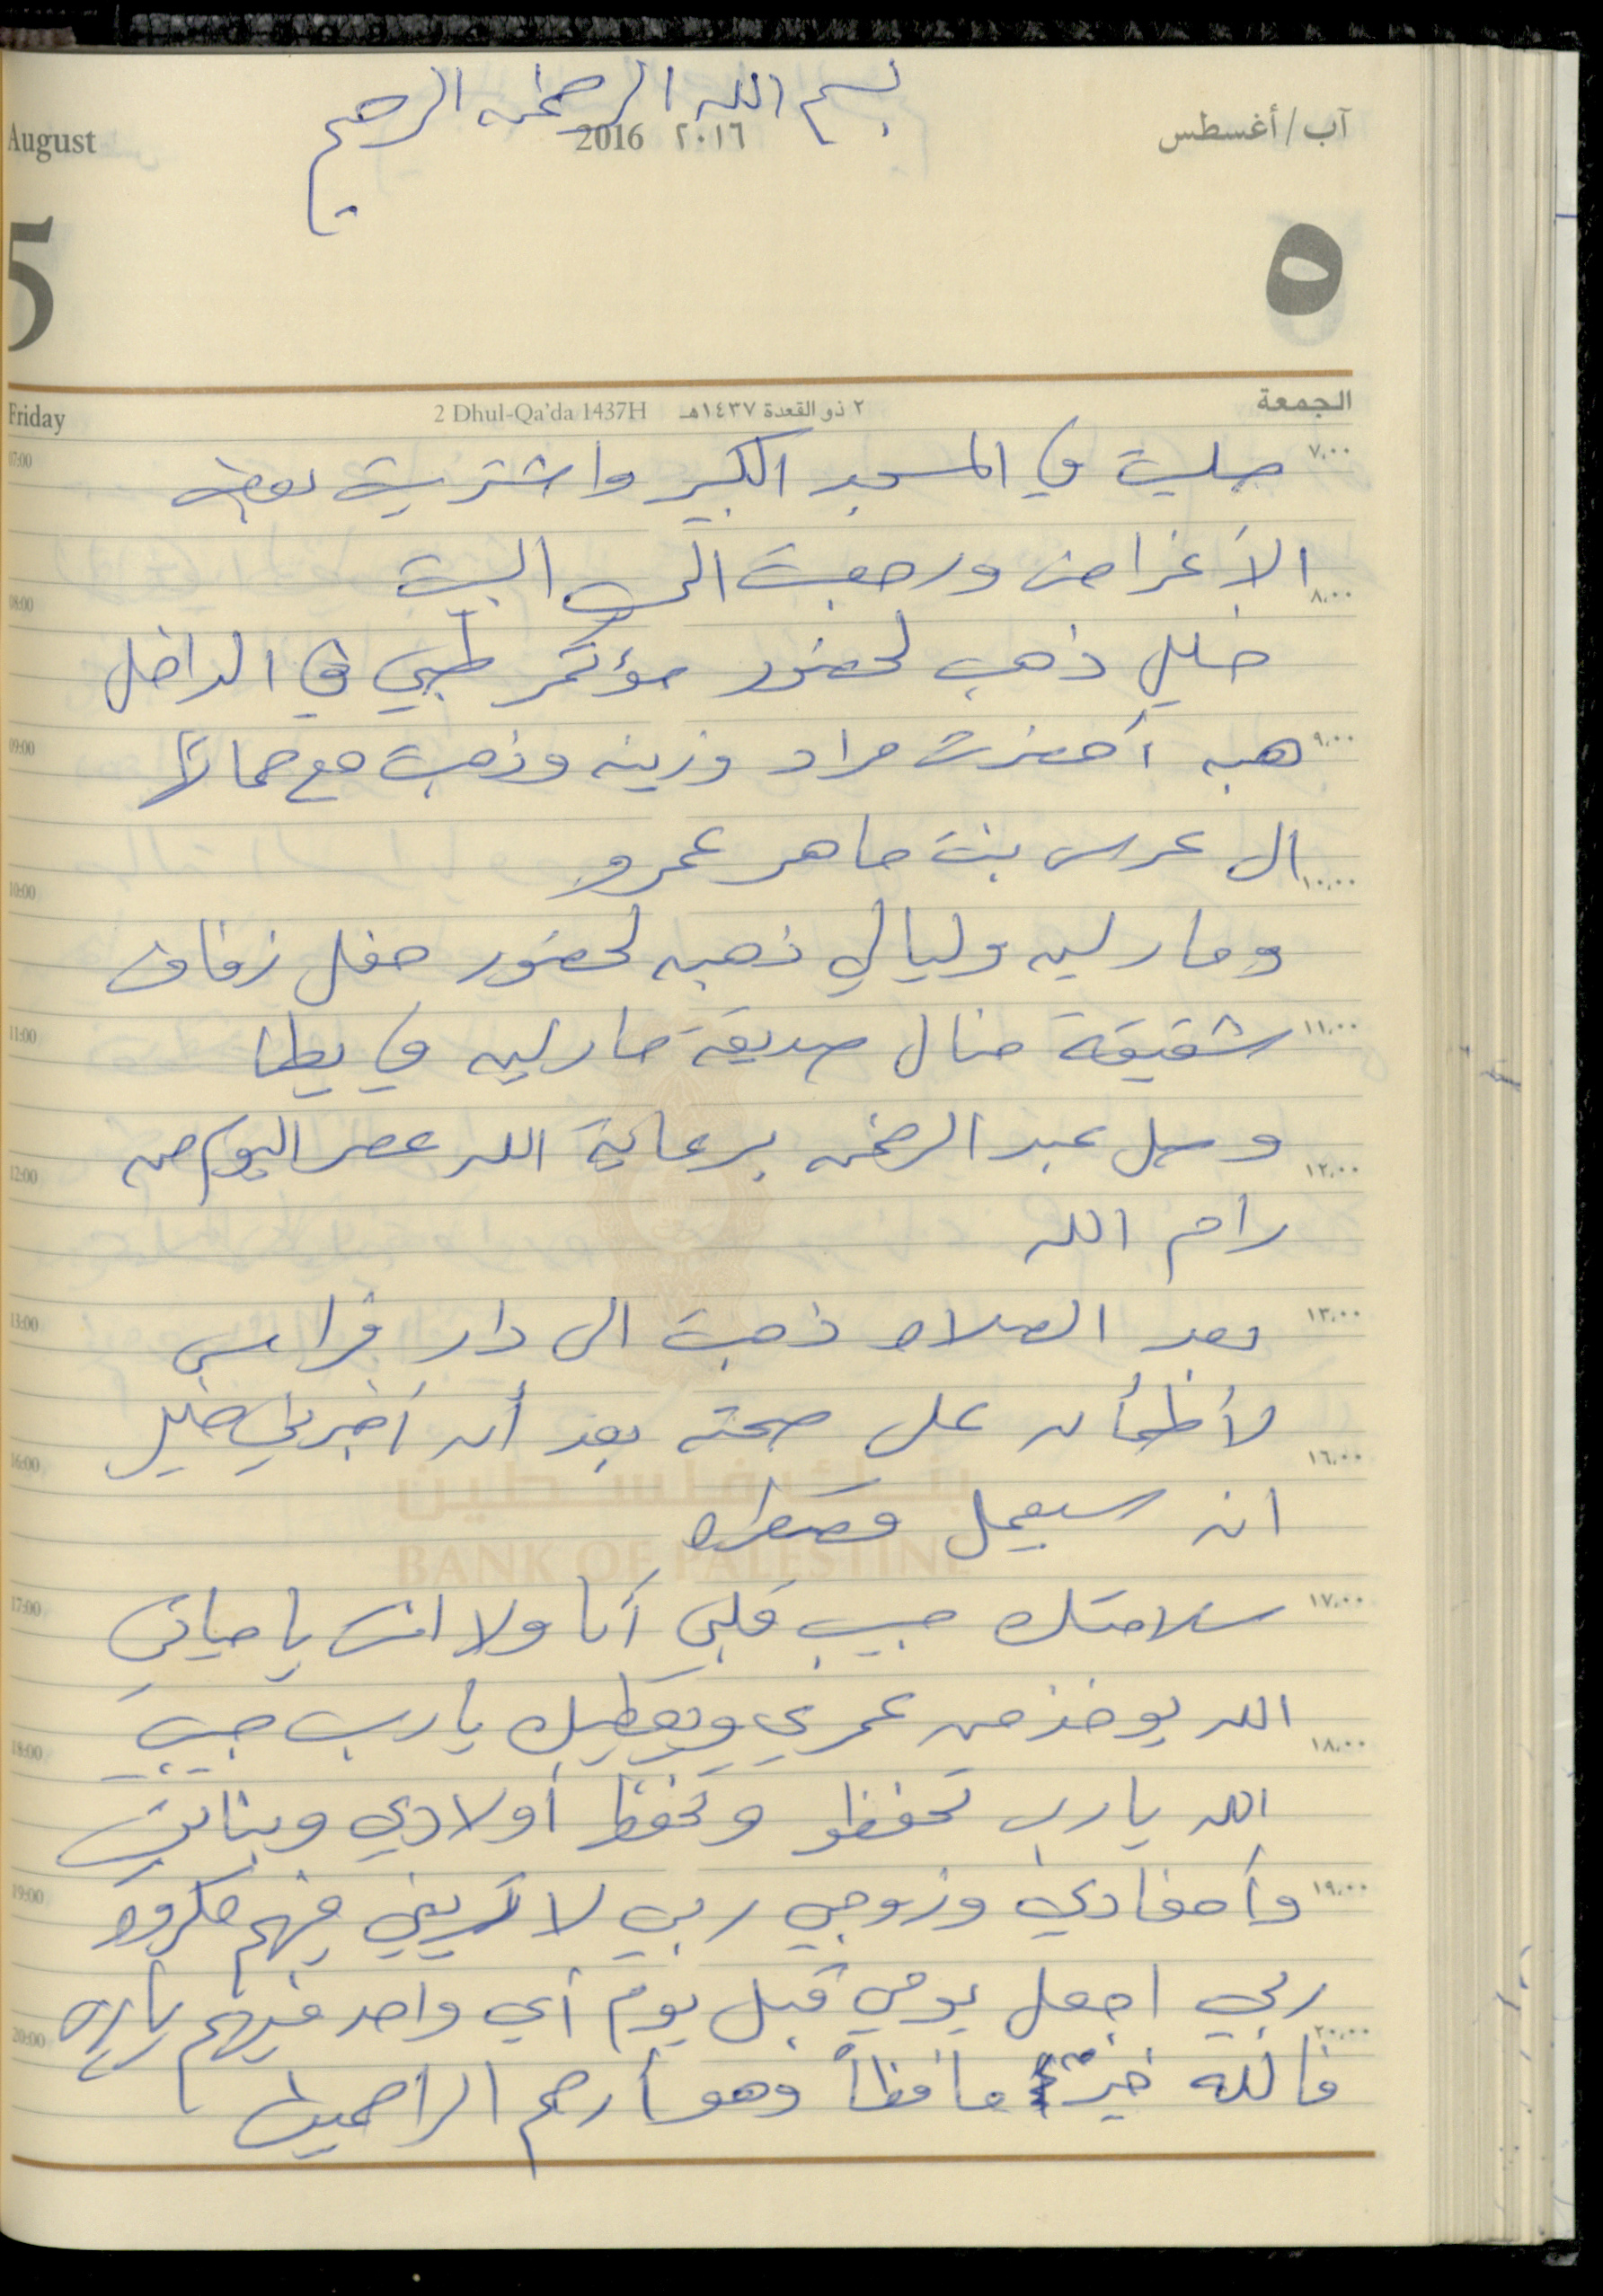 بسم الله الرحمن الرحيم
August 2016 ٢٠١٦ آب/أغسطس
5 ٥
Friday 2 Dhul-Qa'da 1437H ٢ ذو القعدة ١٤٣٧هـ الجمعة
07:00 صليت في المسجد الكبير واشتريت بعض ٧،٠٠
08:00 الأغراض ورجعت الى البيت ٨،٠٠
خليل ذهب لحضور مؤتمر طبي في الداخل
09:00 هبه أحضرت مراد وزينه وذهبت مع حماتها ٩،٠٠
10:00 ال عرس بنت ماهر عمرو ١٠،٠٠
ومارلين وليالي ذهبه لحضور حفل زفاف
11:00 شقيقة منال صديقة مارلين في يطا ١١،٠٠
12:00 وصل عبد الرحمن برعاية الله عصر اليوم من ١٢،٠٠
رام الله
13:00 بعد الصلاه ذهبت الى دار فراس ١٣،٠٠
16:00 لأطمأن على صحته بعد أن أخبرني خليل ١٦،٠٠
انه سيعمل قسطره
بنك فلسطين
BANK OF PALESTINE
17:00 سلامتك حبيب قلبي أنا ولا انت يا حياتي ١٧،٠٠
18:00 الله يوخذ من عمري ويعطيك يارب حبيبي ١٨،٠٠
الله يارب تحفظو وتحفظ أولادي وبناتي
19:00 وأحفادي وزوجي ربي لا تريني فيهم مكروه ١٩،٠٠
20:00 ربي اجعل يومي قبل يوم أي واحد فيهم يارب ٢٠،٠٠
فالله خيرٌ حافظاً وهو أرحم الراحمين